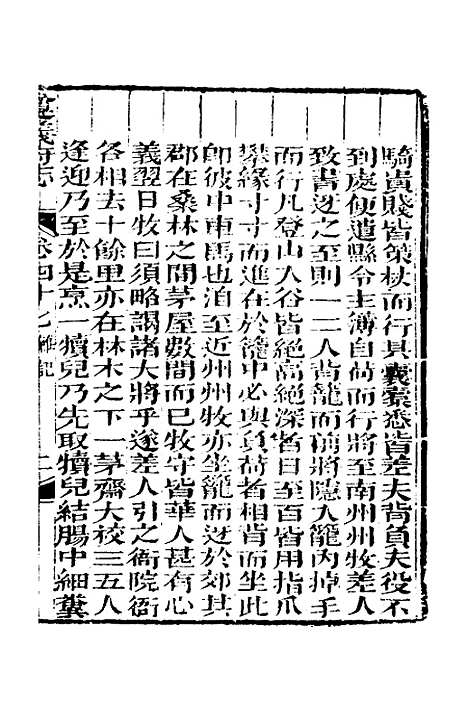 騎貴賤皆策杖而行其囊橐悉皆差夫背負夫役不
到處便遣縣令主簿自荷而行將至南州州牧差人
致書迓之至則一二人背籠而前將隱入籠內掉手
而行凡登山入谷皆絕高絕深者日至百皆用指爪
攀緣寸寸而進在於籠中必與負荷者相背而坐此
即彼中車馬也洎至近州州牧亦坐籠而迓於郊其
郡在桑林之間茅屋數間而已牧守皆華人甚有心
義翌日牧曰須略謁諸大將乎遂差人引之衙院衙
各相去十餘里亦在林木之下一茅齋大校三五人
逢迎乃至於是烹一犢兒乃先取犢兒結腸中細糞
遵義府志
卷四十七 雜記
二